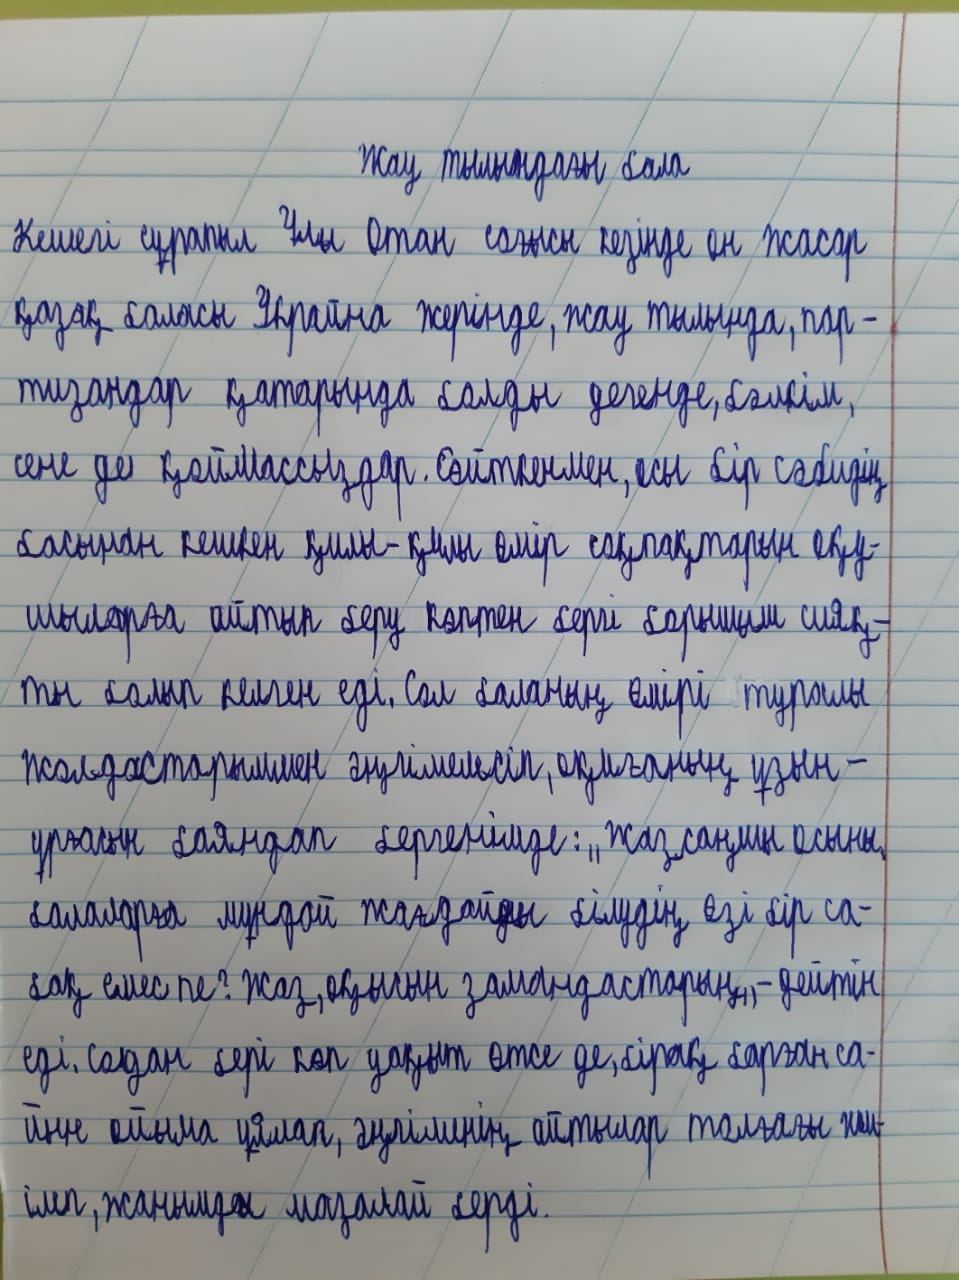 Жау тылындағы бала
Кешегі сұрапыл Ұлы Отан соғысы кезінде он жасар
қазақ баласы Украйна жерінде, жау тылында, пар-
тизандар қатарында болды дегенде, бәлкім,
сене де қоймассыздар. Сөйткенмен, осы бір сәбидің
басынан кешкен қилы-қилы өмір соқпақтарын оқу-
шыларға айтып беру көптен бергі борышым сияқ-
ты болып келген еді. Сол баланың өмірі туралы
жолдастарыммен әңгімелесіп, оқиғаның ұзын-
ырғасын баяндап бергенімде: „Жазсаңшы осыны,
балаларға мұндай жағдайды білудің өзі бір са-
бақ емес пе? Жаз, оқысын замандастарың„,- дейтін
еді. Содан бері көп уақыт өтсе де, бірақ барған са-
йын ойыма ұялап, әңгіминің айтылар толғағы
жанымды мазалай берді.